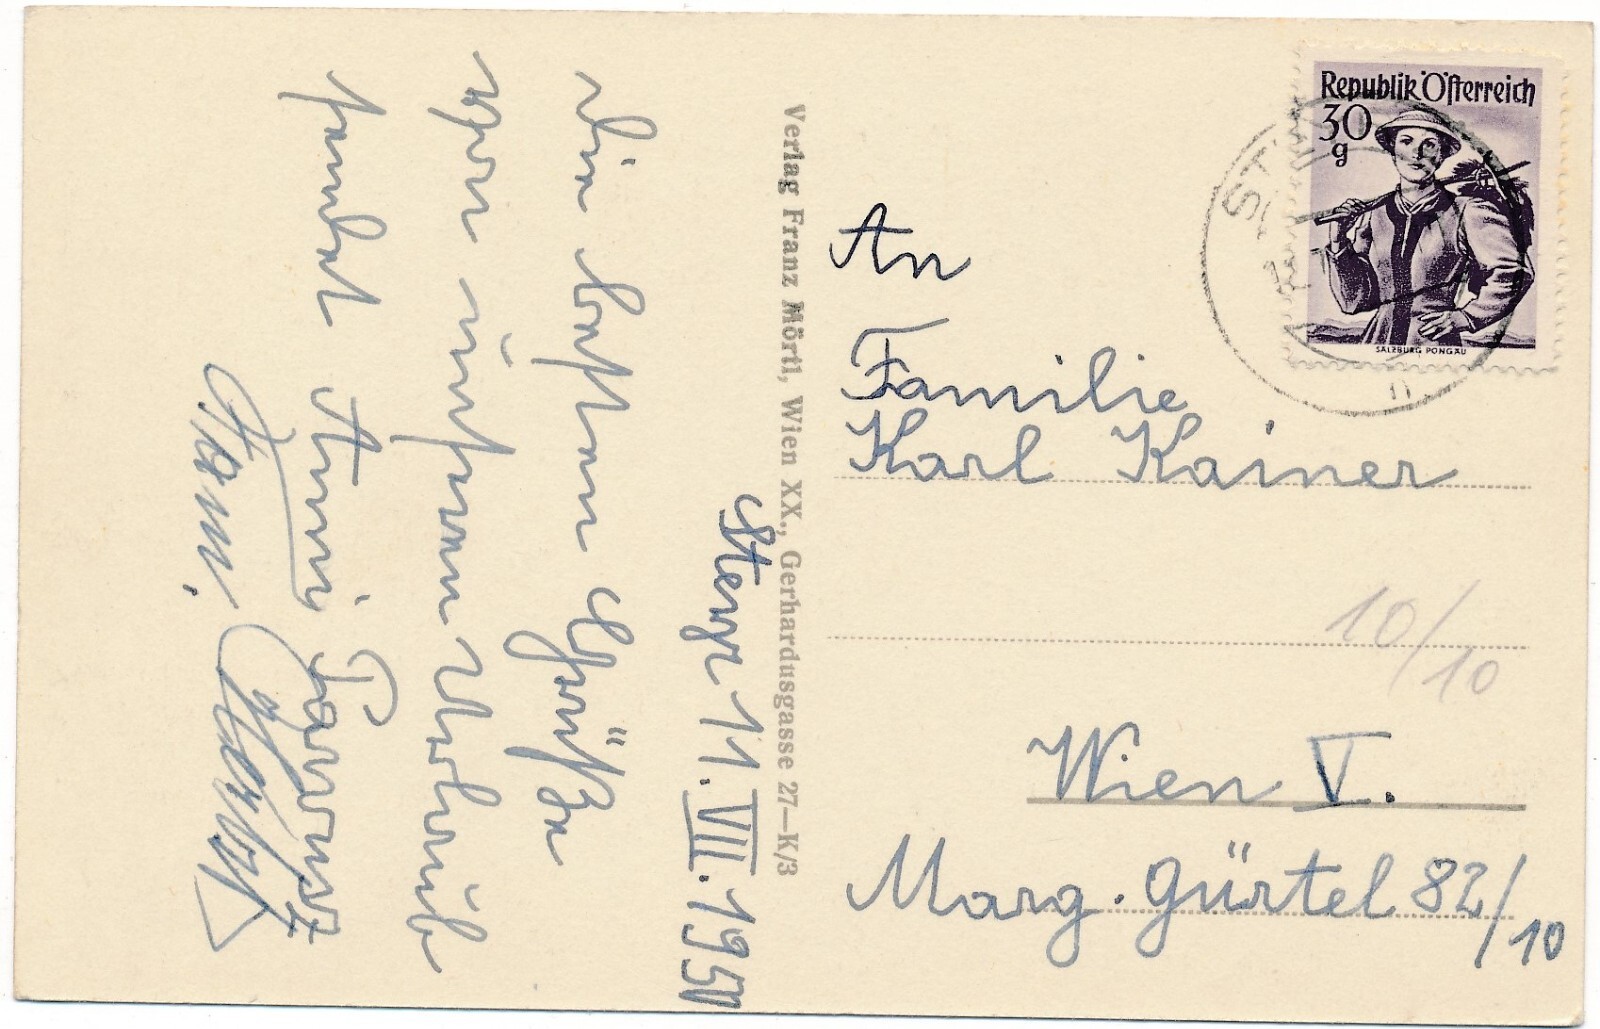 Steyr 11. VII. 1950
Die besten Grüße
von unserem Urlaub
sendet Anni
Verlag Franz Mörtl, Wien XX., Gerhardusgasse 27—K/3
Republik Österreich
30
g
SALZBURG PONGAU
An
Familie
Karl Kainer
10/10
Wien V.
Marg. Gürtel 82/10